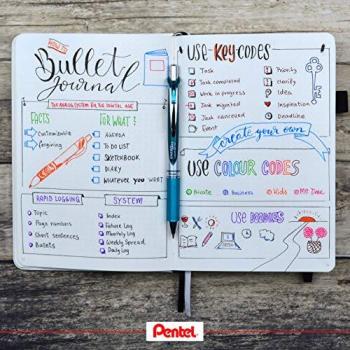 HOW TO
Bullet
Journal
THE ANALOG SYSTEM FOR THE DIGITAL AGE
FACTS
customizable
forgiving
FOR WHAT?
AGENDA
TO DO LIST
SKETCHBOOK
DIARY
WHATEVER YOU WANT
RAPID LOGGING
Topic
Page numbers
Short sentences
Bullets
SYSTEM
Index
Future Log
Monthly Log
Weekly Spread
Daily Log
USE KEY-CODES
Task
Task completed
Work in progress
Task migrated
Task canceled
Event
Priority
Clarify
Idea
Inspiration
Deadline
create your own
USE COLOUR CODES
Private
Business
Kids
Me Time
USE DOODLES
Pentel